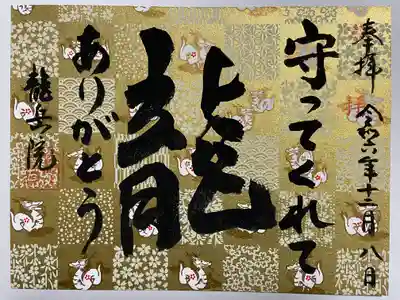 奉拝 令和六年十二月八日
守ってくれて
龍
ありがとう